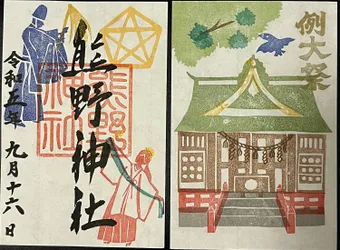 令和五年
九月十六日
熊野神社
熊野
神社
例大祭